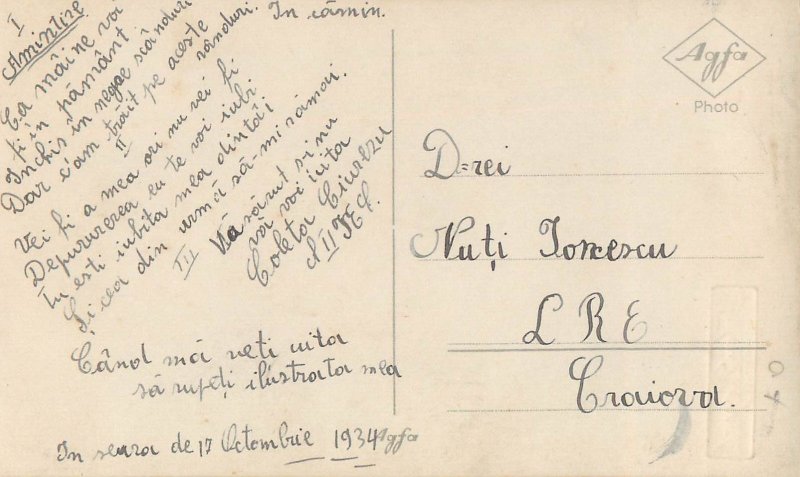 I
Amintire
In cămin.
Ca mâine voi
fi în pământ
Inchis în negre scânduri
Dar c'am trăit pe aceste
rânduri.
II
Vei fi a mea ori nu vei fi
Depururea eu te voi iubi
Tu ești iubita mea dintâi
Și cea din urmă să-mi rămâi.
III
Vă sărut și nu
vă voi uita
Coleta Ciurezu
Când mă veți uita
să rupeți ilustrata mea
In seara de 17 Octombrie 1934
Agfa
Agfa
Photo
D=rei
Nuți Ionescu
L R E
Craiova.